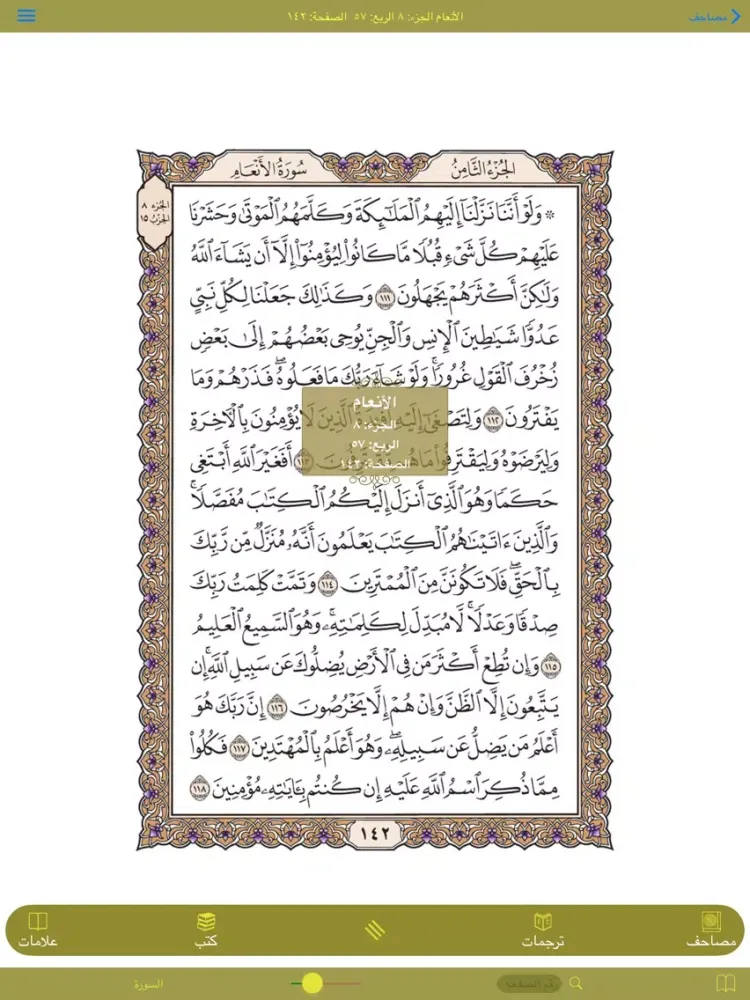 مصاحف
الأنعام الجزء: ٨ الربع: ٥٧ الصفحة: ١٤٢
الجُزْءُ الثَّامِنُ
سُورَةُ الأَنْعَامِ
الجزء ٨
الحزب ١٥
۞ وَلَوْ أَنَّنَا نَزَّلْنَا إِلَيْهِمُ الْمَلَٰٓئِكَةَ وَكَلَّمَهُمُ الْمَوْتَىٰ وَحَشَرْنَا
عَلَيْهِمْ كُلَّ شَيْءٍ قُبُلًا مَّا كَانُوا۟ لِيُؤْمِنُوٓا۟ إِلَّآ أَن يَشَآءَ اللَّهُ
وَلَٰكِنَّ أَكْثَرَهُمْ يَجْهَلُونَ ١١١ وَكَذَٰلِكَ جَعَلْنَا لِكُلِّ نَبِيٍّ
عَدُوًّا شَيَٰطِينَ الْإِنسِ وَالْجِنِّ يُوحِى بَعْضُهُمْ إِلَىٰ بَعْضٍ
زُخْرُفَ الْقَوْلِ غُرُورًا ۚ وَلَوْ شَآءَ رَبُّكَ مَا فَعَلُوهُ ۖ فَذَرْهُمْ وَمَا
يَفْتَرُونَ ١١٢ وَلِتَصْغَىٰٓ إِلَيْهِ أَفْـِٔدَةُ الَّذِينَ لَا يُؤْمِنُونَ بِالْـَٔاخِرَةِ
وَلِيَرْضَوْهُ وَلِيَقْتَرِفُوا۟ مَا هُم مُّقْتَرِفُونَ ١١٣ أَفَغَيْرَ اللَّهِ أَبْتَغِى
حَكَمًا وَهُوَ الَّذِىٓ أَنزَلَ إِلَيْكُمُ الْكِتَٰبَ مُفَصَّلًا ۚ
وَالَّذِينَ ءَاتَيْنَٰهُمُ الْكِتَٰبَ يَعْلَمُونَ أَنَّهُۥ مُنَزَّلٌ مِّن رَّبِّكَ
بِالْحَقِّ ۖ فَلَا تَكُونَنَّ مِنَ الْمُمْتَرِينَ ١١٤ وَتَمَّتْ كَلِمَتُ رَبِّكَ
صِدْقًا وَعَدْلًا ۚ لَّا مُبَدِّلَ لِكَلِمَٰتِهِۦ ۚ وَهُوَ السَّمِيعُ الْعَلِيمُ
١١٥ وَإِن تُطِعْ أَكْثَرَ مَن فِى الْأَرْضِ يُضِلُّوكَ عَن سَبِيلِ اللَّهِ ۚ إِن
يَتَّبِعُونَ إِلَّا الظَّنَّ وَإِنْ هُمْ إِلَّا يَخْرُصُونَ ١١٦ إِنَّ رَبَّكَ هُوَ
أَعْلَمُ مَن يَضِلُّ عَن سَبِيلِهِۦ ۖ وَهُوَ أَعْلَمُ بِالْمُهْتَدِينَ ١١٧ فَكُلُوا۟
مِمَّا ذُكِرَ اسْمُ اللَّهِ عَلَيْهِ إِن كُنتُم بِـَٔايَٰتِهِۦ مُؤْمِنِينَ ١١٨
الأنعام
الجزء: ٨
الربع: ٥٧
الصفحة: ١٤٢
١٤٢
مصاحف
ترجمات
كتب
علامات
رقم الصفحة
السورة